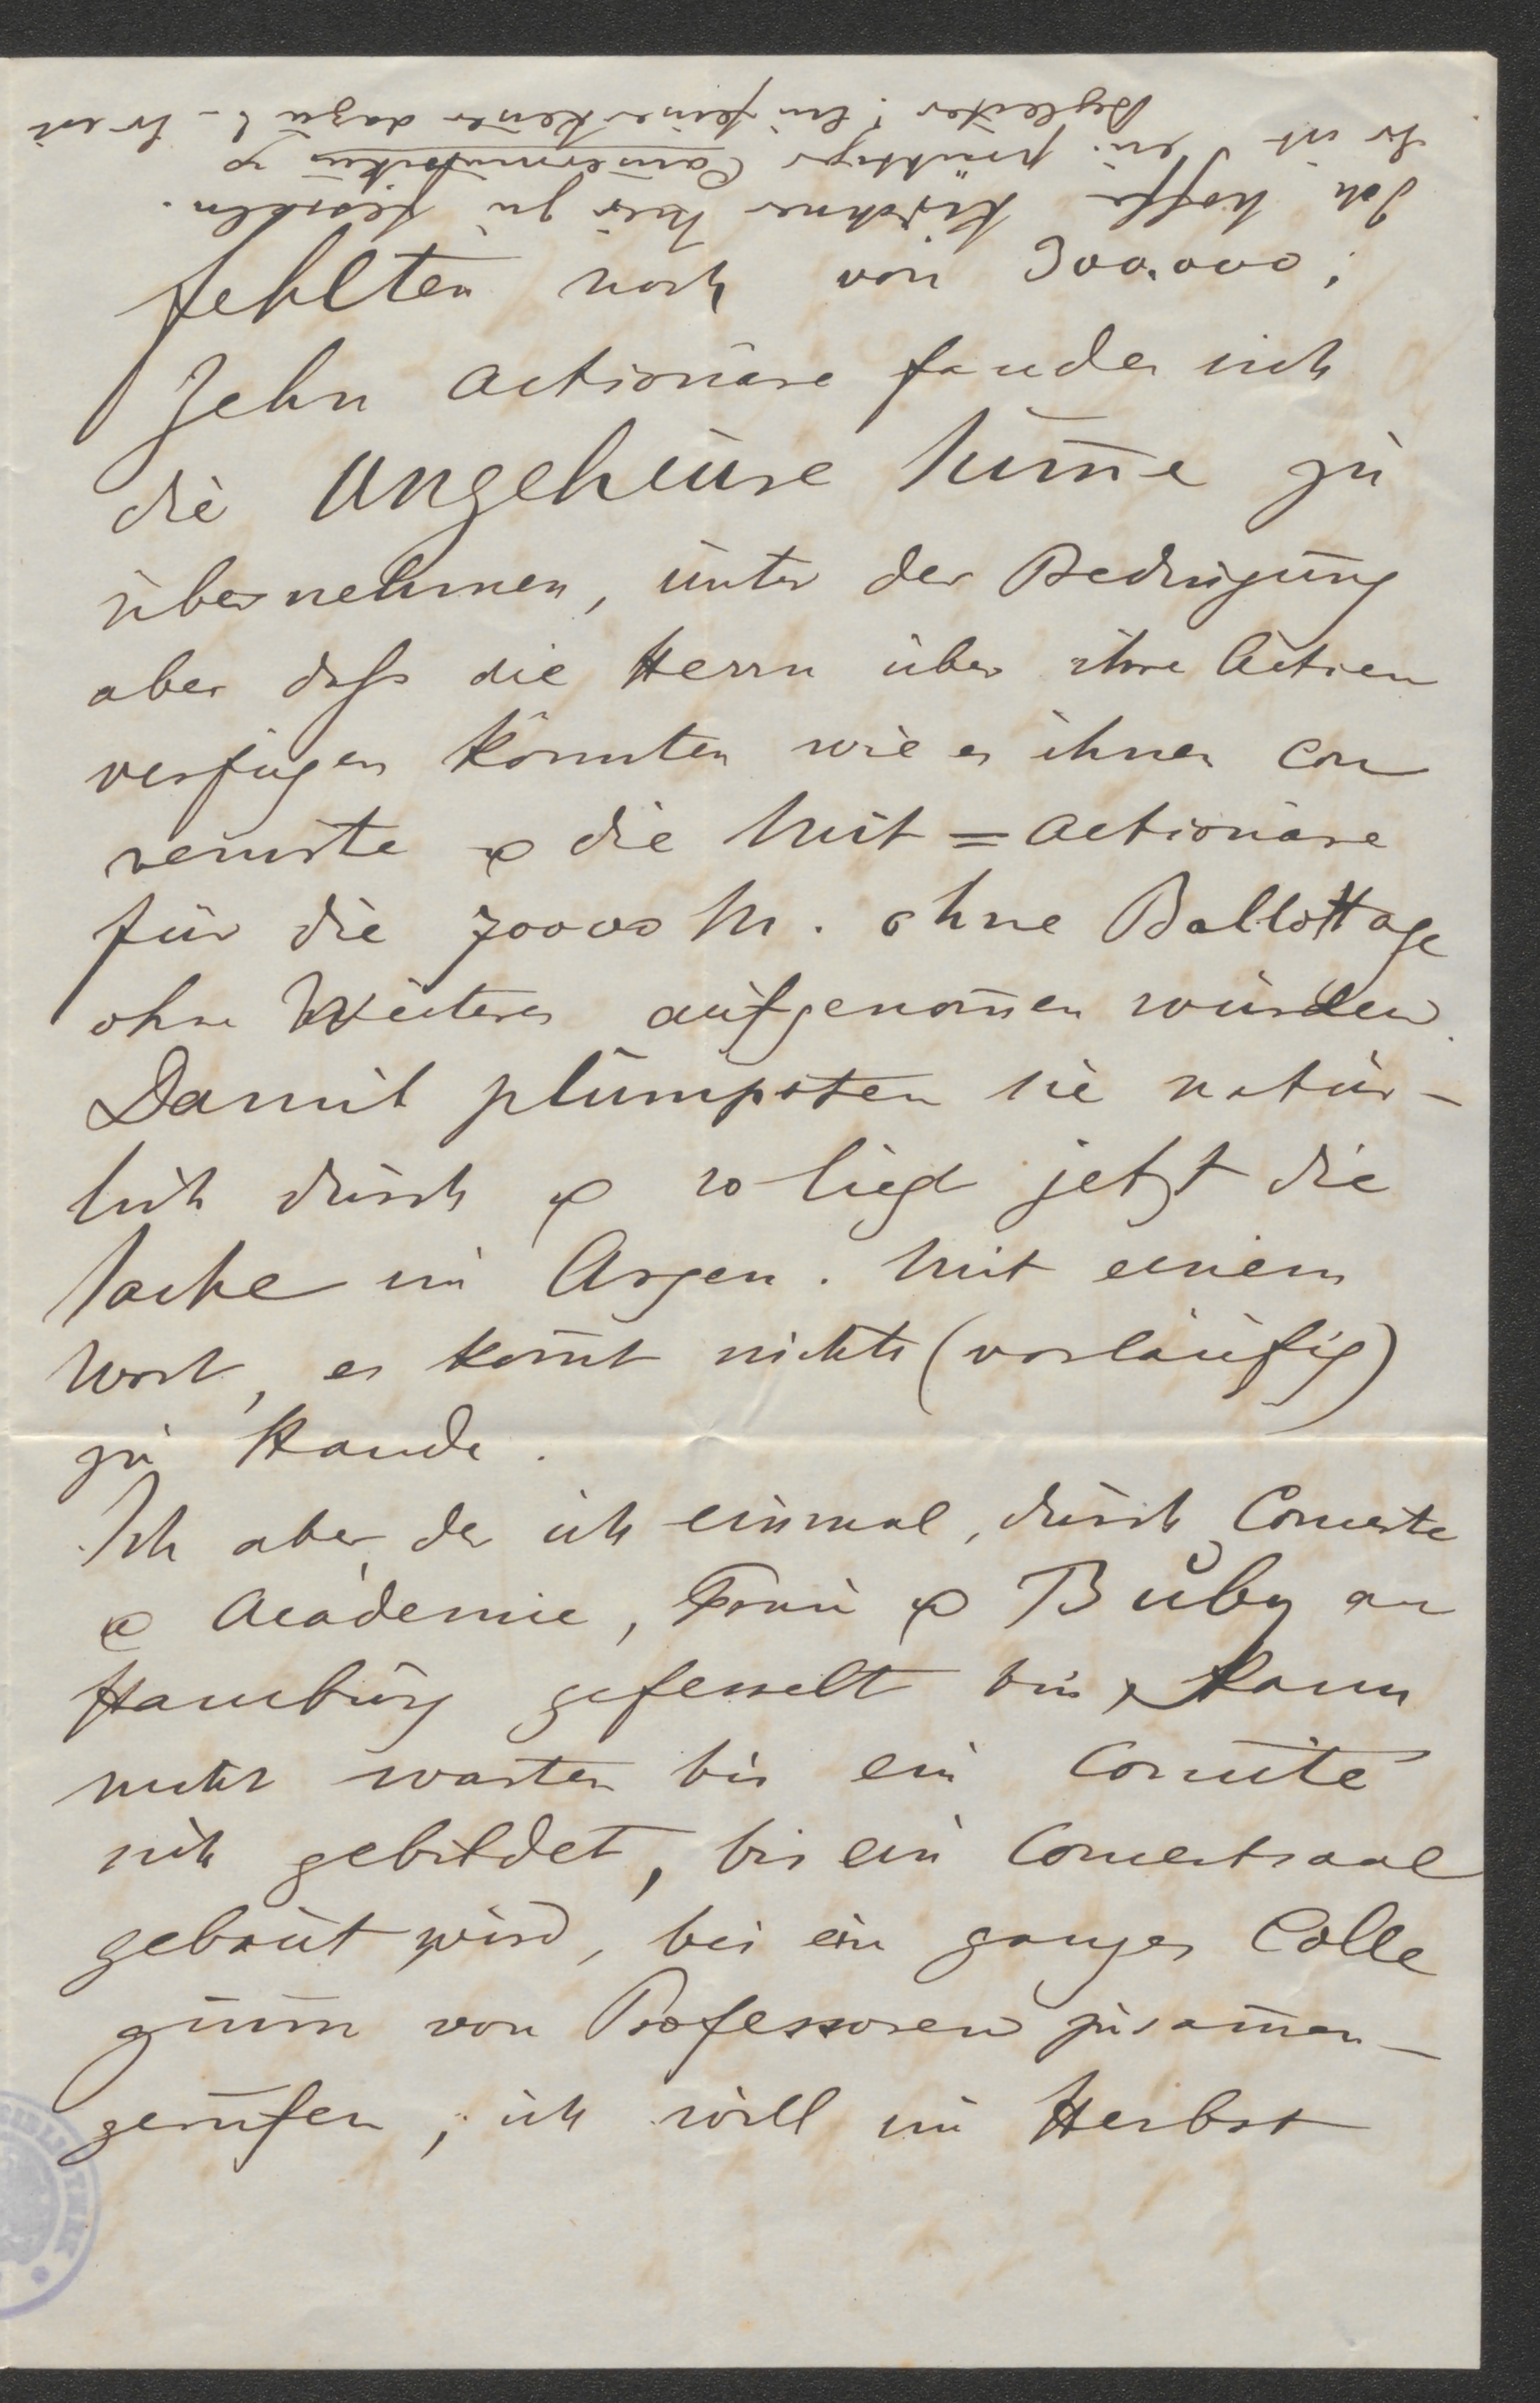 fehlten noch von 300.000;
Zehn Actionäre fanden sich
die ungeheure Sum̄e zu
übernehmen, unter der Bedingung
aber daß die Herrn über ihre Actien
verfügen könnten wie es ihnen con
venirte & die Mit=Actionäre
für die 70000 M. ohne Ballottage
ohne Weiteres aufgenom̄en würden.
Damit plumpsten sie natür-
lich durch & so liegt jetzt die
Sache im Argen. Mit einem
Wort, es kom̄t nichts (vorläufig)
zu Stande.
Ich aber, der ich einmal, durch Concerte
& Académie, Frau & Buby an
Hamburg gefesselt bin, kann
nicht warten bis ein Comité
sich gebildet, bis ein Concertsaal
gebaut wird, bis ein ganzes Colle
gium von Professoren zusam̄en-
gerufen; ich will im Herbst
Ich hoffe Kirchner hier zu fesseln.
Er ist ein prächtiger Kam̄ermusiker &
Begleiter! Ein feiner Kenner dazu! - Er ist